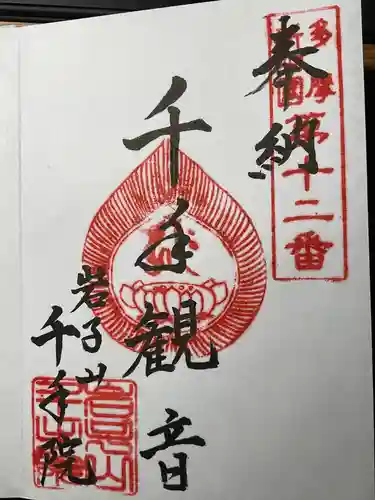 奉納
多摩新四国
第十二番
千手観音
岩子山
千手院